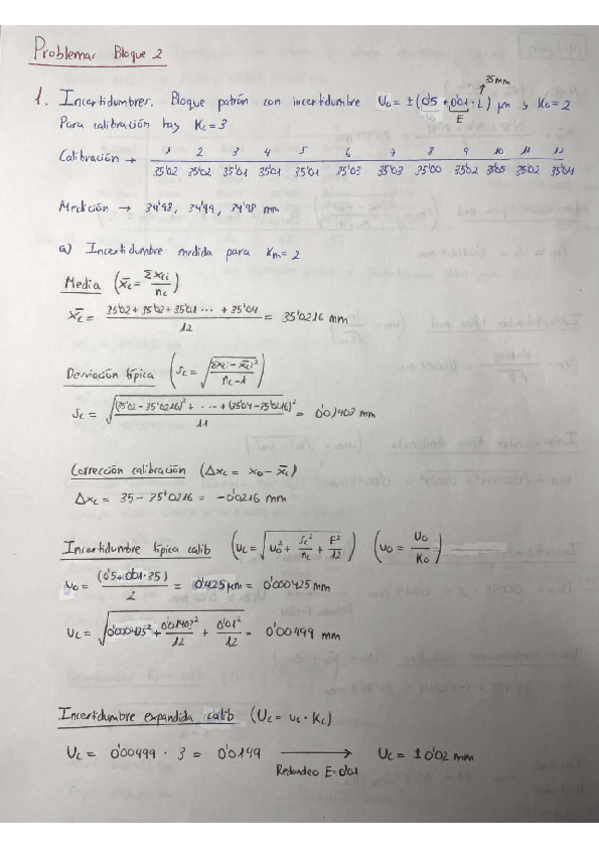 Problemas Bloque 2
35 mm
1. Incertidumbres. Bloque patrón con incertidumbre U₀ = ±(0'5 + 0'01·L) μm y K₀ = 2
E
Para calibración hay Kc = 3
1 2 3 4 5 6 7 8 9 10 11 12
Calibración → 35'02 35'02 35'01 35'01 35'01 35'03 35'03 35'00 35'02 35'05 35'02 35'04
Medición → 34'98, 34'99, 34'98 mm
a) Incertidumbre medida para Km = 2
Media (x̄c = Σxci / nc)
x̄c = (35'02 + 35'02 + 35'01 ... + 35'04) / 12 = 35'0216 mm
Desviación típica (sc = √(Σ(xci − x̄c)² / (nc − 1)))
sc = √(((35'02 − 35'0216)² + ... + (35'04 − 35'0216)²) / 11) = 0'01403 mm
Corrección calibración (Δxc = x₀ − x̄c)
Δxc = 35 − 35'0216 = −0'0216 mm
Incertidumbre típica calib (uc = √(u₀² + sc²/nc + E²/12)) (u₀ = U₀/K₀)
u₀ = (0'5 + 0'01·35) / 2 = 0'425 μm = 0'000425 mm
uc = √(0'000425² + 0'01403²/12 + 0'01²/12) = 0'00499 mm
Incertidumbre expandida calib (Uc = uc · Kc)
Uc = 0'00499 · 3 = 0'0149 → Uc = ±0'02 mm
Redondeo E = 0'01